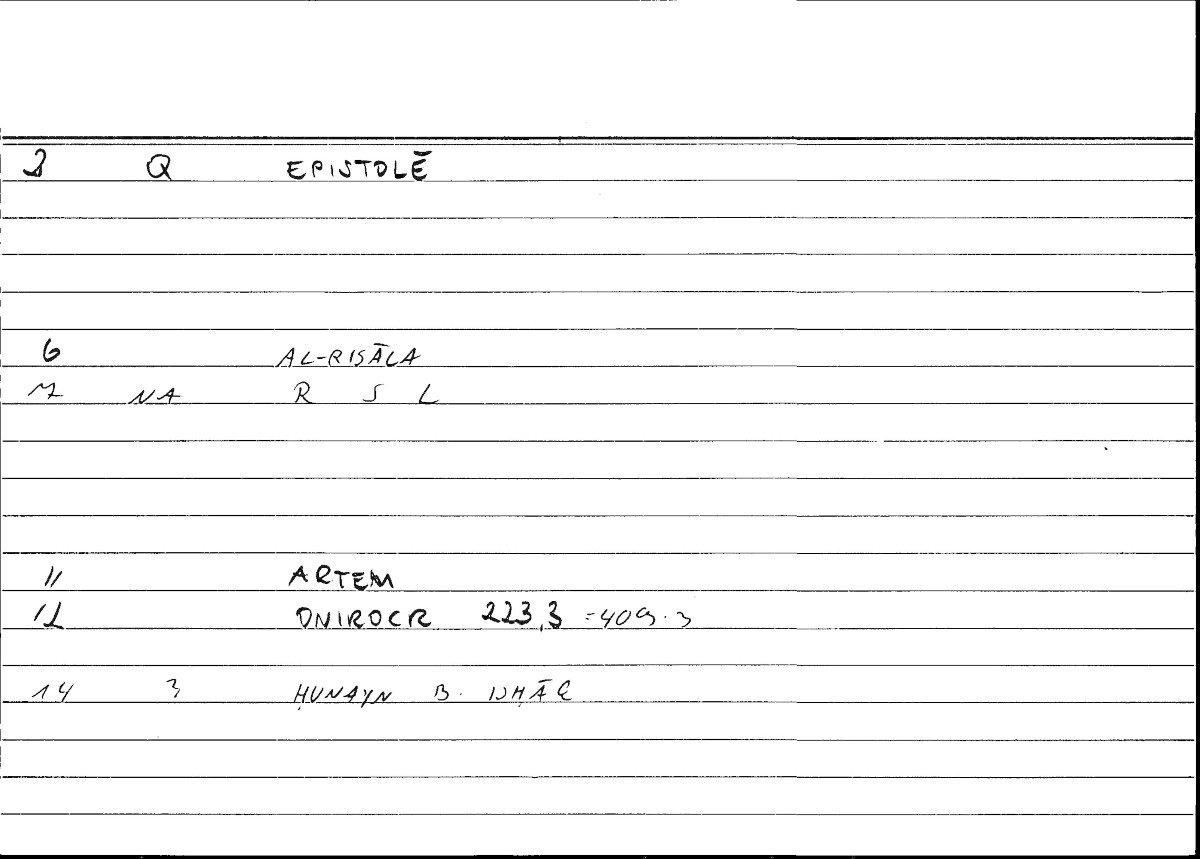 2 Q EPISTOLĒ
6 AL-RISĀLA
7 NA R S L
11 ARTEM
12 ONIROCR 223,3 =409.3
14 3 ḤUNAYN B. ISḤĀQ